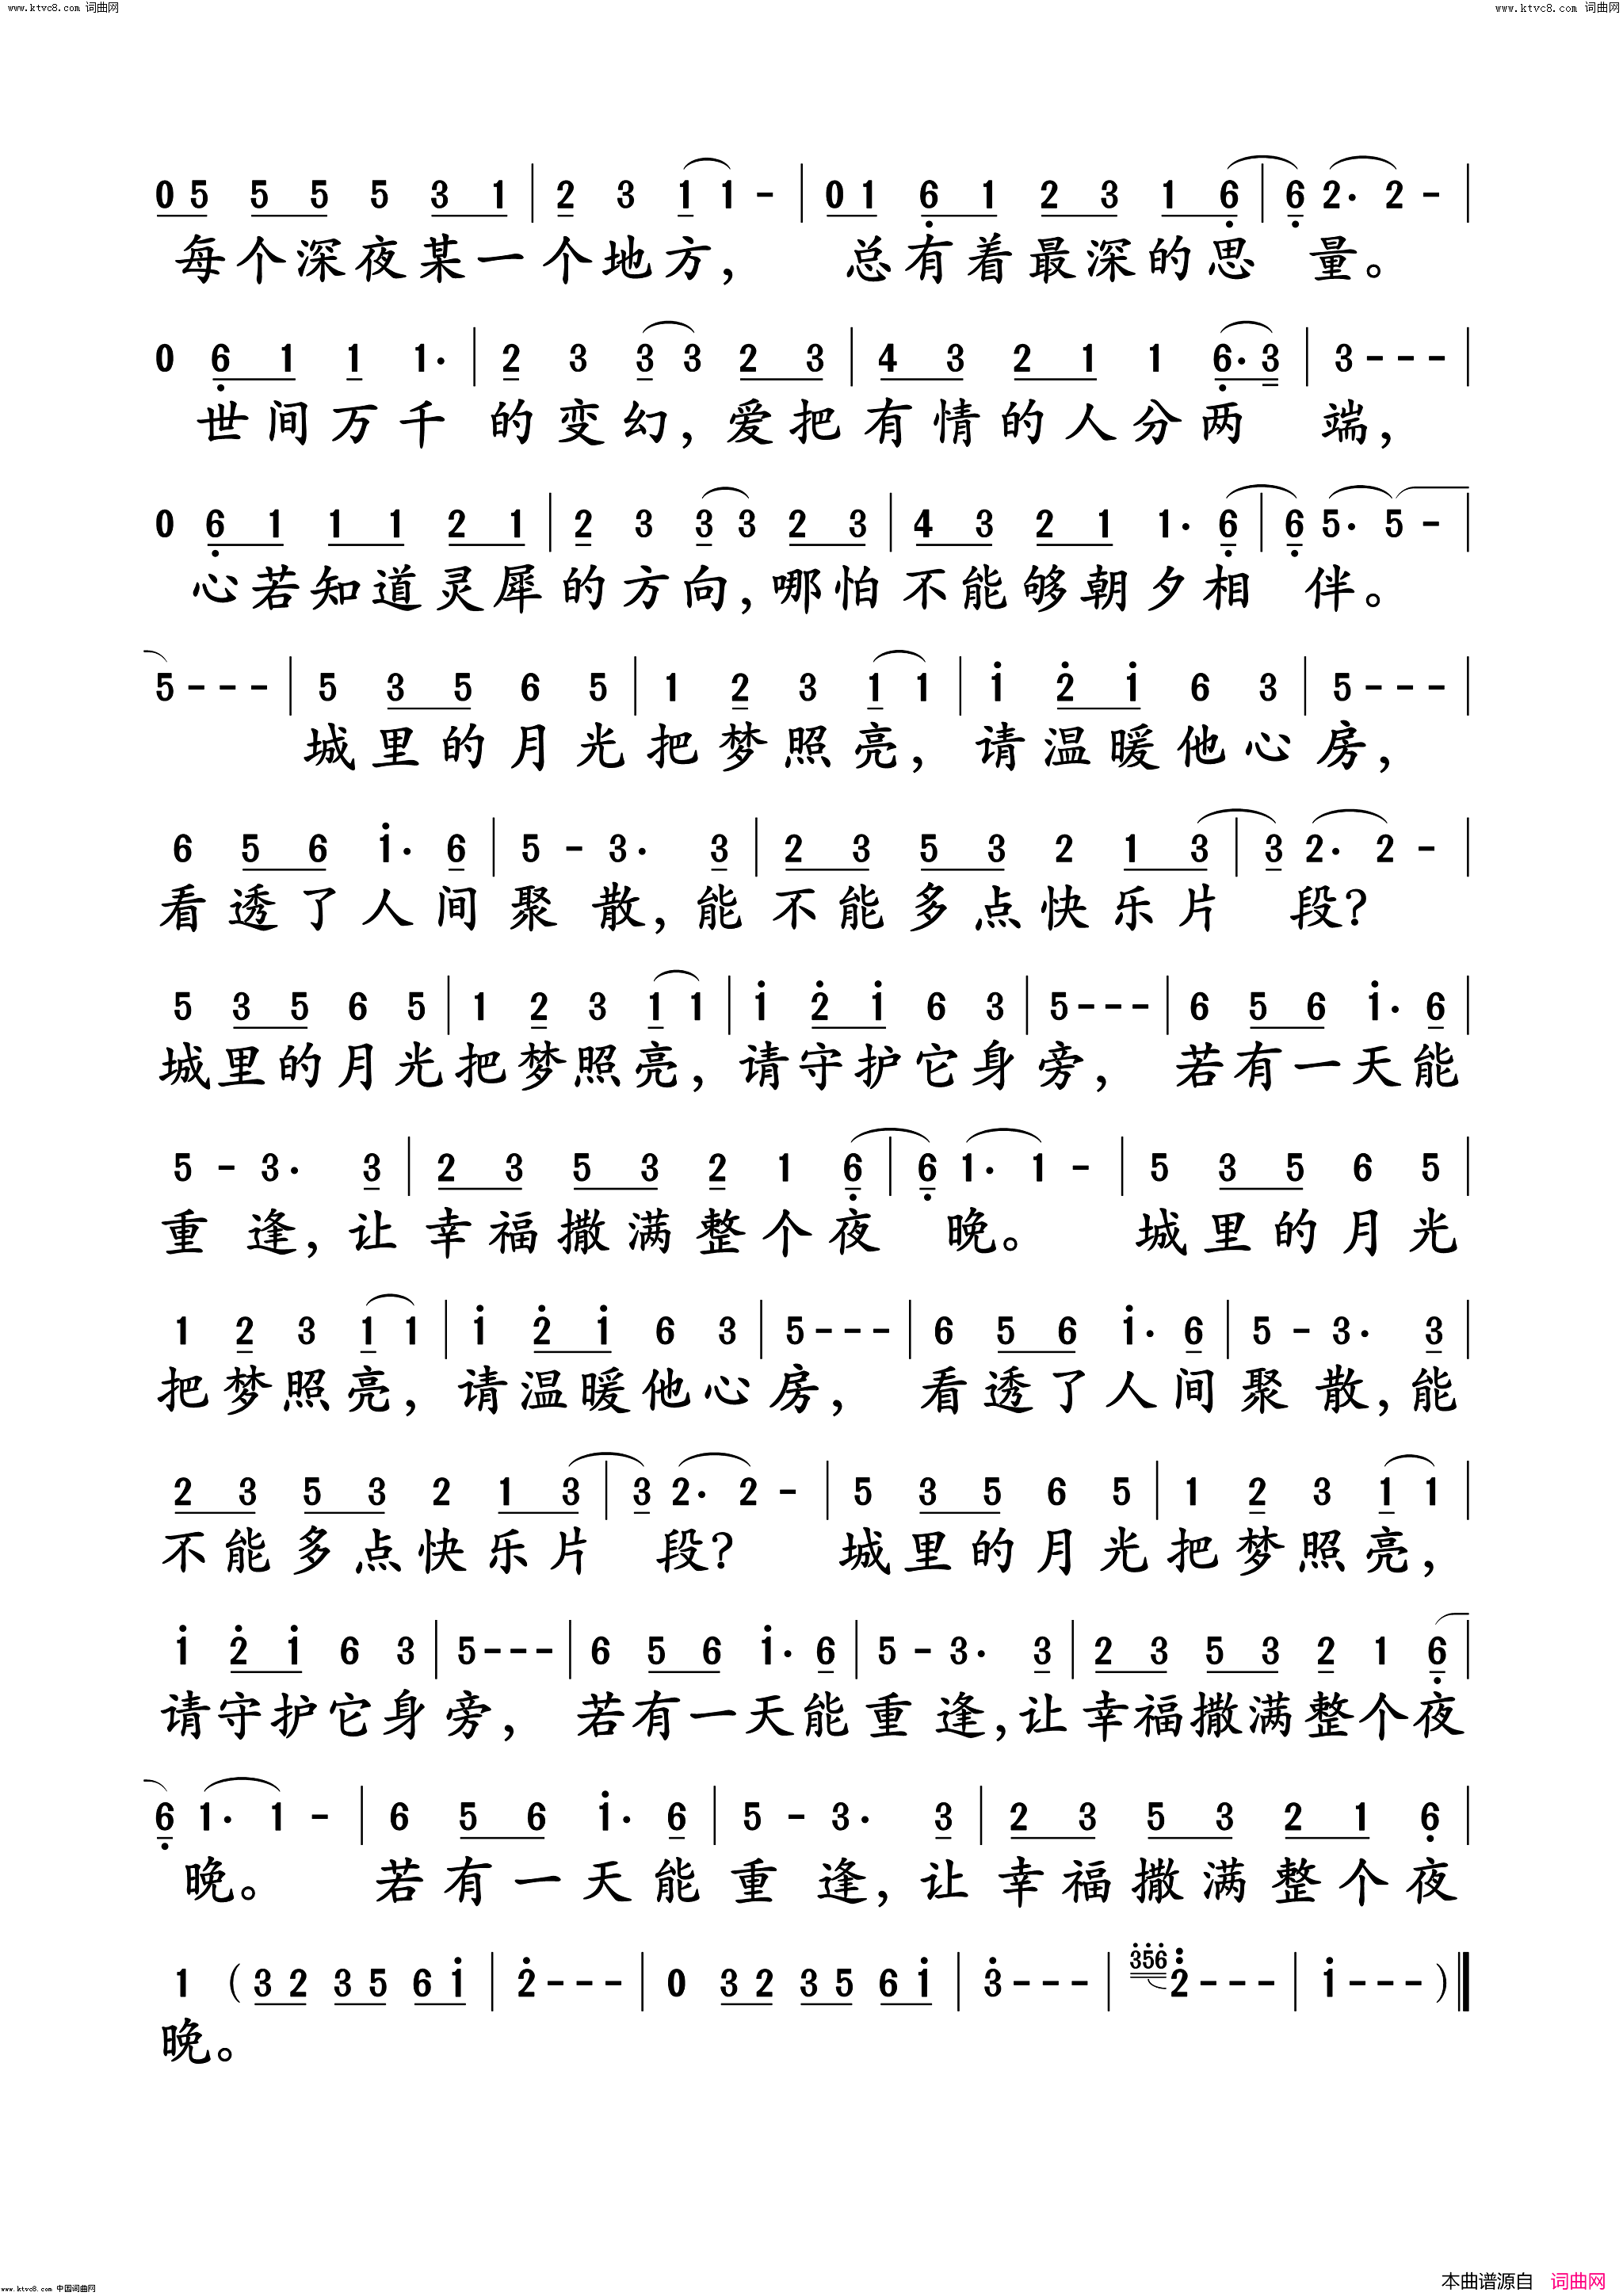 www.ktvc8.com 词曲网 www.ktvc8.com 词曲网
0 5 5 5 5 3 1 | 2 3 1 1 - | 0 1 6̣ 1 2 3 1 6̣ | 6̣ 2. 2 - |
每个深夜某一个地方， 总有着最深的思 量。
0 6̣ 1 1 1. | 2 3 3 3 2 3 | 4 3 2 1 1 6̣. 3 | 3 - - - |
世间万千的变幻，爱把有情的人分两 端，
0 6̣ 1 1 1 2 1 | 2 3 3 3 2 3 | 4 3 2 1 1. 6̣ | 6̣ 5. 5 - |
心若知道灵犀的方向，哪怕不能够朝夕相 伴。
5 - - - | 5 3 5 6 5 | 1 2 3 1 1 | 1̇ 2̇ 1̇ 6 3 | 5 - - - |
城里的月光把梦照亮，请温暖他心房，
6 5 6 1̇. 6 | 5 - 3. 3 | 2 3 5 3 2 1 3 | 3 2. 2 - |
看透了人间聚散，能不能多点快乐片 段？
5 3 5 6 5 | 1 2 3 1 1 | 1̇ 2̇ 1̇ 6 3 | 5 - - - | 6 5 6 1̇. 6 |
城里的月光把梦照亮，请守护它身旁， 若有一天能
5 - 3. 3 | 2 3 5 3 2 1 6̣ | 6̣ 1. 1 - | 5 3 5 6 5 |
重逢，让幸福撒满整个夜 晚。 城里的月光
1 2 3 1 1 | 1̇ 2̇ 1̇ 6 3 | 5 - - - | 6 5 6 1̇. 6 | 5 - 3. 3 |
把梦照亮，请温暖他心房， 看透了人间聚散，能
2 3 5 3 2 1 3 | 3 2. 2 - | 5 3 5 6 5 | 1 2 3 1 1 |
不能多点快乐片 段？ 城里的月光把梦照亮，
1̇ 2̇ 1̇ 6 3 | 5 - - - | 6 5 6 1̇. 6 | 5 - 3. 3 | 2 3 5 3 2 1 6̣ |
请守护它身旁， 若有一天能重逢，让幸福撒满整个夜
6̣ 1. 1 - | 6 5 6 1̇. 6 | 5 - 3. 3 | 2 3 5 3 2 1 6̣ |
晚。 若有一天能重逢，让幸福撒满整个夜
1 ( 3 2 3 5 6 1̇ | 2̇ - - - | 0 3 2 3 5 6 1̇ | 3̇ - - - | 3̇5̇6̇ 2̈ - - - | 1̇ - - - ) ‖
晚。
www.ktvc8.com 中国词曲网 本曲谱源自 词曲网